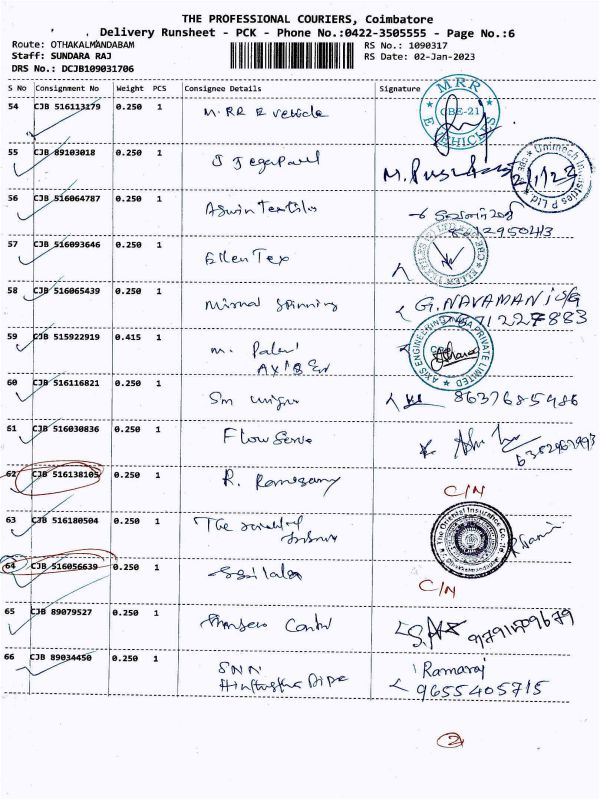 THE PROFESSIONAL COURIERS, Coimbatore
Delivery Runsheet - PCK - Phone No.:0422-3505555 - Page No.:6
Route: OTHAKALMANDABAM
RS No.: 1090317
Staff: SUNDARA RAJ
RS Date: 02-Jan-2023
DRS No.: DCJB109031706
S No Consignment No Weight PCS Consignee Details Signature
54 CJB 516113179 0.250 1 M. RR E vehicle
MRR
CBE-21
E VEHICLES
55 CJB 89103018 0.250 1
Unimech Industries P Ltd
56 CJB 516064787 0.250 1 Aswin Textiles
57 CJB 516093646 0.250 1 Ellen Tex
58 CJB 516065439 0.250 1 Mirnal Spinning G. NAVAMANI
59 CJB 515922919 0.415 1 M. Palani
AXIS En
AXIS ENGINEERING INDIA PRIVATE LIMITED
60 CJB 516116821 0.250 1 8637685486
61 CJB 516030836 0.250 1 Flow Serve
62 CJB 516138105 0.250 1 R. Ramasamy C/N
63 CJB 516180504 0.250 1 The
The Oriental Insurance Co.
64 CJB 516056639 0.250 1 C/N
65 CJB 89079527 0.250 1
66 CJB 89034450 0.250 1 SNN Ramaraj
9655405715
2